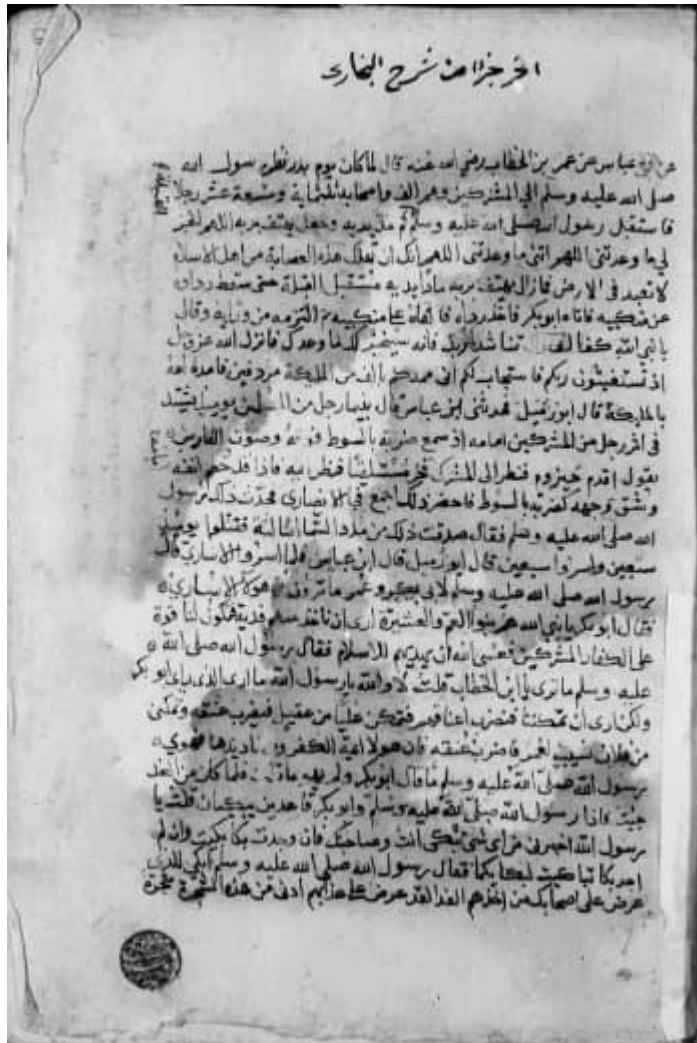 اخر جزا من شرح البخارى
عن ابن عباس عن عمر بن الخطاب رضي الله عنه قال لما كان يوم بدر نظر رسول الله
صلى الله عليه وسلم الي المشركين وهم الف واصحابه ثلثماية وتسعة عشر رجلا
فاستقبل رسول الله صلى الله عليه وسلم ثم مد يديه وجعل يهتف بربه اللهم انجز
لي ما وعدتني اللهم اتني ما وعدتني اللهم انك ان تهلك هذه العصابة من اهل الاسلام
لا تعبد في الارض فما زال يهتف بربه مادا يديه مستقبل القبلة حتى سقط رداوه
عن منكبيه فاتاه ابو بكر فاخذ رداه فالقاه على منكبيه ثم التزمه من ورايه وقال
يا نبي الله كفاك مناشدتك ربك فانه سينجز لك ما وعدك فانزل الله عز وجل
اذ تستغيثون ربكم فاستجاب لكم اني ممدكم بالف من الملكة مردفين فامده الله
بالملكة قال ابو زميل فحدثني ابن عباس قال بينما رجل من المسلمين يوميذ يشتد
في اثر رجل من المشركين امامه اذ سمع ضربه بالسوط فوقه وصوت الفارس
يقول اقدم حيزوم فنظر الى المشرك فخر مستلقيا فنظر اليه فاذا قد حطم انفه
وشق وجهه كضربه بالسوط فاحضر ذلك اجمع فجا الانصاري فحدث ذلك رسول
الله صلى الله عليه وسلم فقال صدقت ذلك من مدد السما الثالثة فقتلوا يوميذ
سبعين واسروا سبعين قال ابو زميل قال ابن عباس فلما اسروا الاساري قال
رسول الله صلى الله عليه وسلم لابي بكر وعمر ما ترون في هولا الاساري
فقال ابو بكر يا نبي الله هم بنو العم والعشيرة ارى ان تاخذ منهم فدية فتكون لنا قوة
على الكفار المشركين فعسى الله ان يهديهم للاسلام فقال رسول الله صلى الله
عليه وسلم ما ترى يا ابن الخطاب قلت لا والله يا رسول الله ما ارى الذى راى ابو بكر
ولكن ارى ان تمكننا فنضرب اعناقهم فتمكن عليا من عقيل فيضرب عنقه وتمكني
من فلان نسيب لعمر فاضرب عنقه فان هولا ايمة الكفر وصناديدها فهوي
رسول الله صلى الله عليه وسلم ما قال ابو بكر ولم يهو ما قلت فلما كان من الغد
جيت فاذا رسول الله صلى الله عليه وسلم وابو بكر قاعدين يبكيان قلت يا
رسول الله اخبرني من اى شي تبكي انت وصاحبك فان وجدت بكا بكيت وان لم
اجد بكا تباكيت لبكايكما فقال رسول الله صلى الله عليه وسلم ابكي للذى
عرض على اصحابك من اخذهم الفدا لقد عرض على عذابهم ادنى من هذه الشجرة شجرة